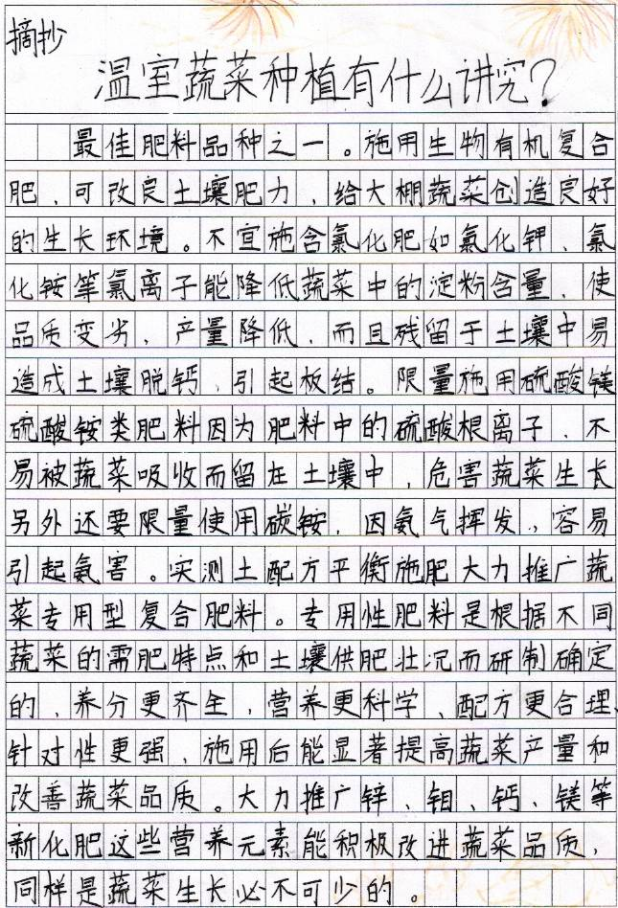 摘抄
温室蔬菜种植有什么讲究?
最佳肥料品种之一。施用生物有机复合
肥、可改良土壤肥力,给大棚蔬菜创造良好
的生长环境。不宜施含氯化肥如氯化钾、氯
化铵等氯离子能降低蔬菜中的淀粉含量,使
品质变劣,产量降低,而且残留于土壤中易
造成土壤脱钙,引起板结。限量施用硫酸镁
硫酸铵类肥料因为肥料中的硫酸根离子,不
易被蔬菜吸收而留在土壤中,危害蔬菜生长
另外还要限量使用碳铵,因氨气挥发,容易
引起氨害。实测土配方平衡施肥大力推广蔬
菜专用型复合肥料。专用性肥料是根据不同
蔬菜的需肥特点和土壤供肥壮况而研制确定
的,养分更齐全,营养更科学、配方更合理、
针对性更强,施用后能显著提高蔬菜产量和
改善蔬菜品质。大力推广锌、钼、钙、镁等
新化肥这些营养元素能积极改进蔬菜品质,
同样是蔬菜生长必不可少的。